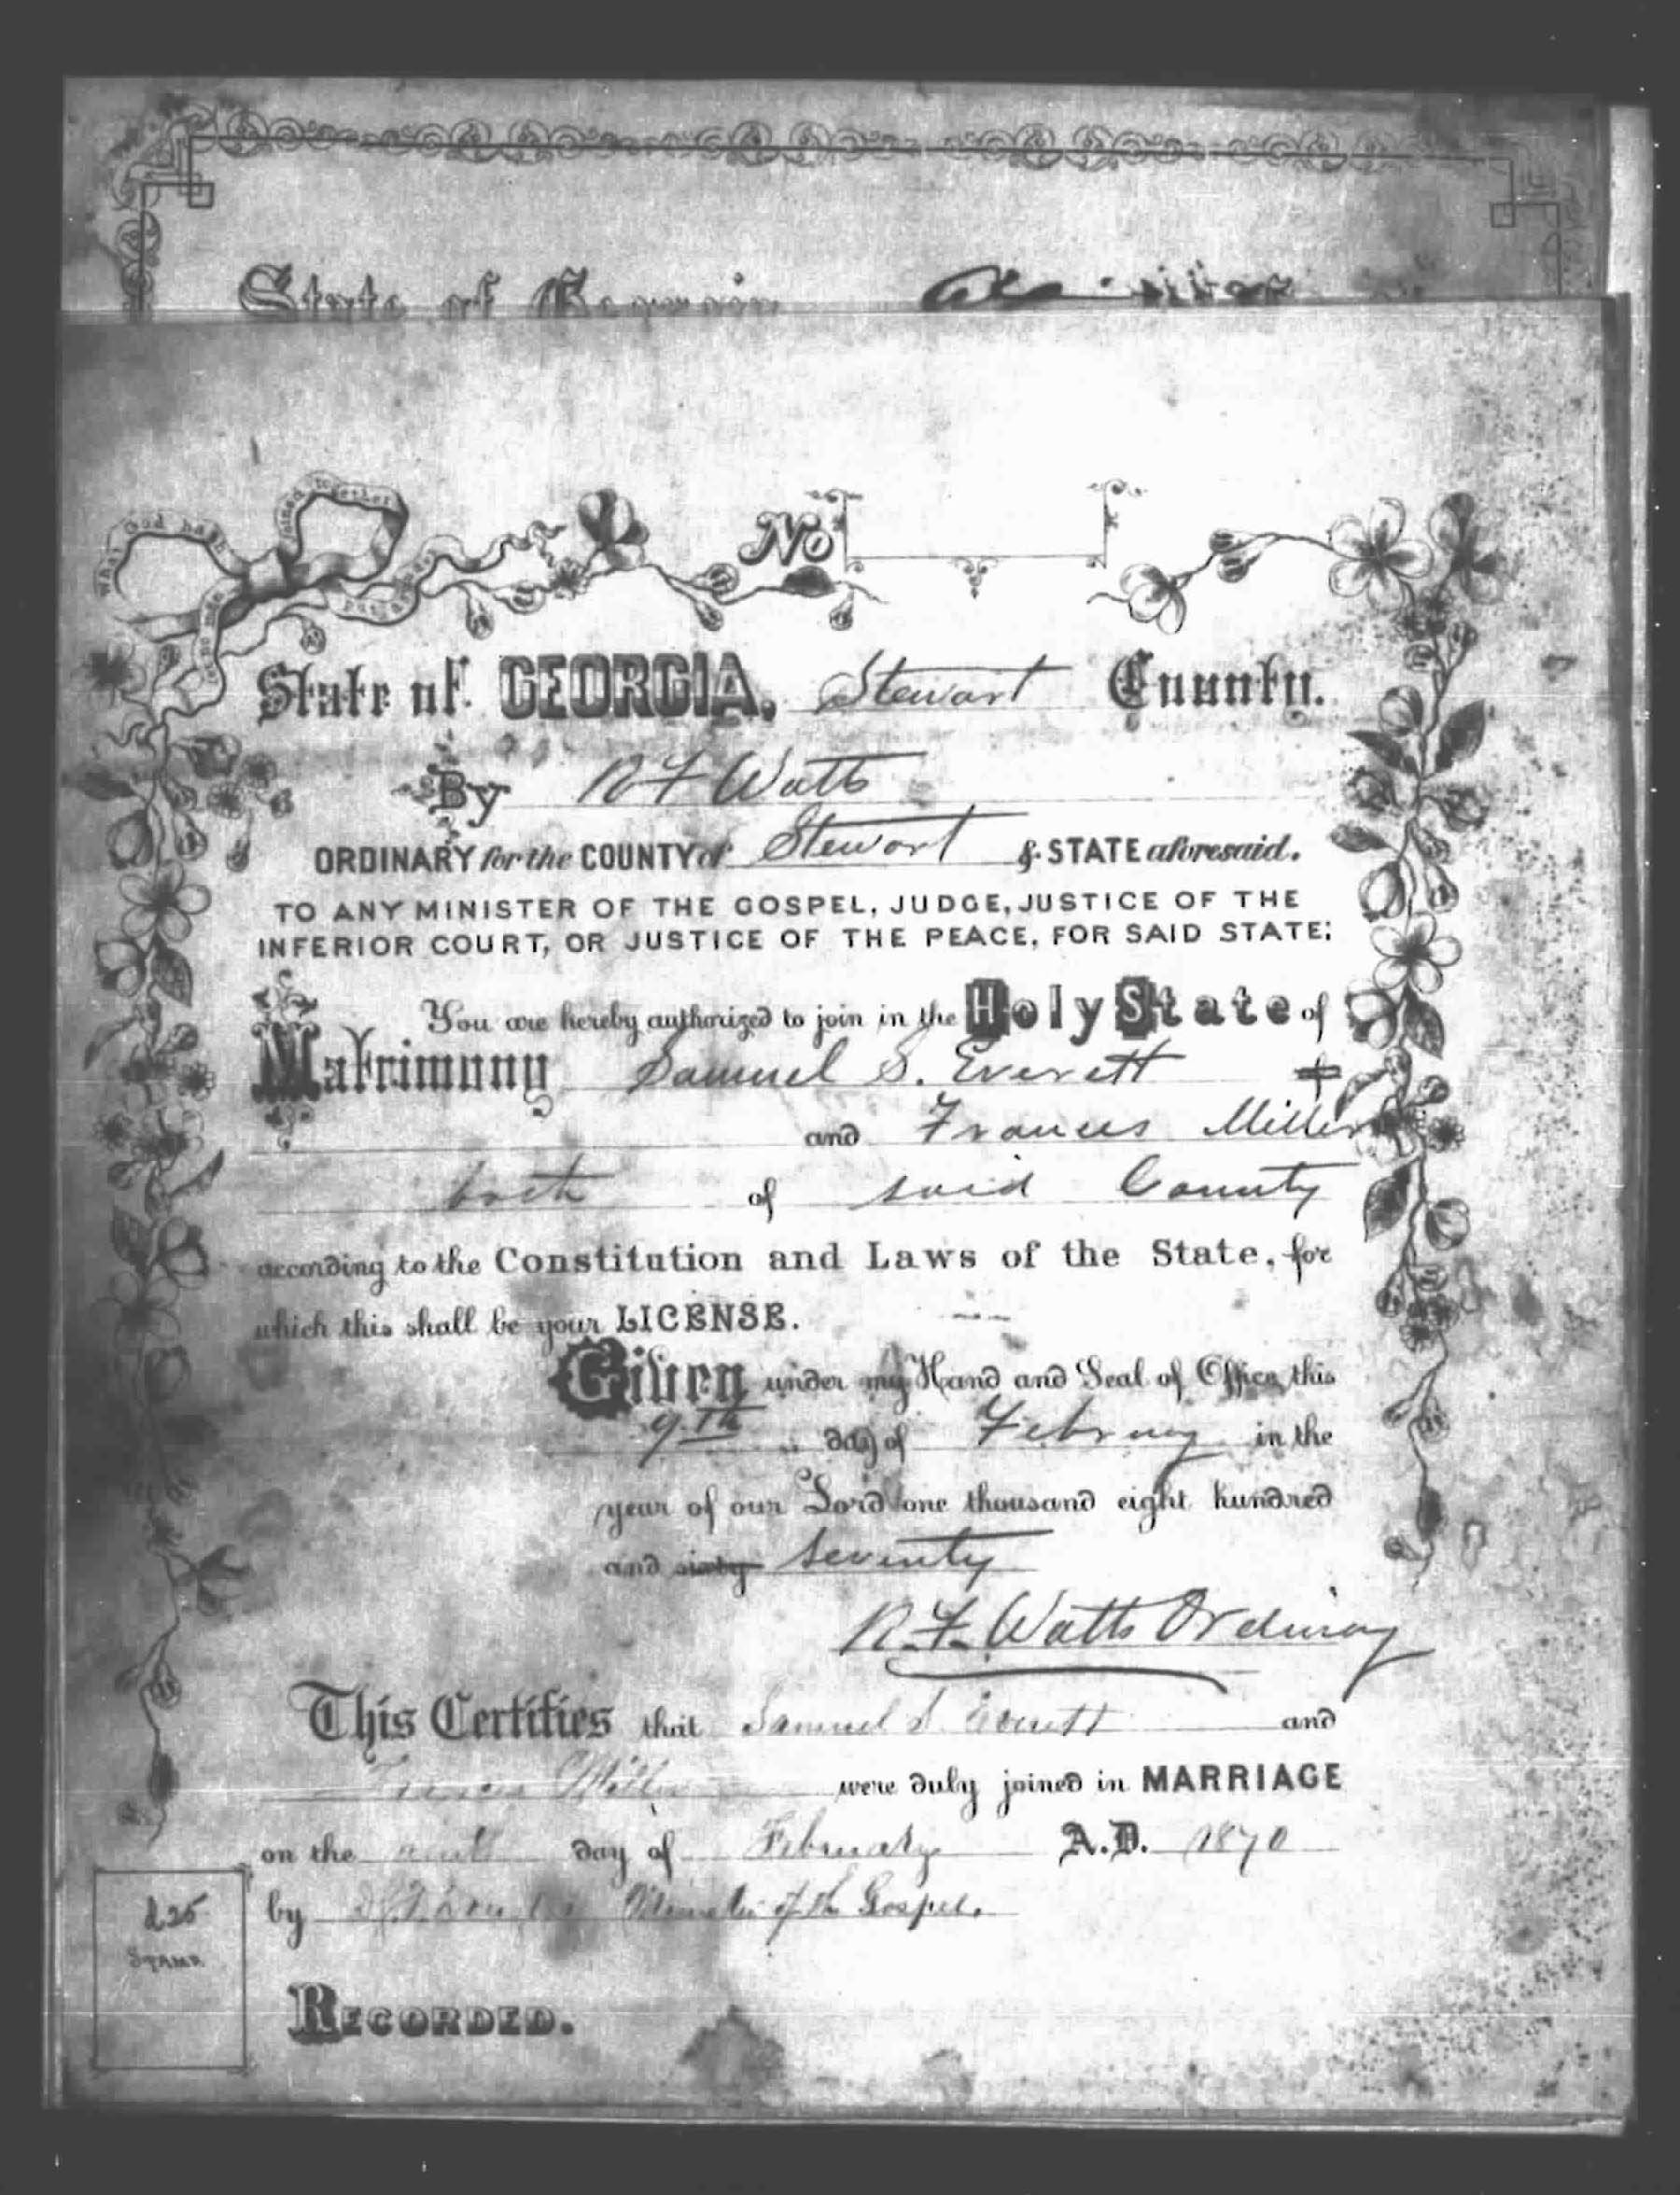 State of Georgia
What God hath joined together let no man put asunder
No
State of GEORGIA, Stewart County.
By R F Watts
ORDINARY for the COUNTY of Stewart & STATE aforesaid.
TO ANY MINISTER OF THE GOSPEL, JUDGE, JUSTICE OF THE
INFERIOR COURT, OR JUSTICE OF THE PEACE, FOR SAID STATE:
You are hereby authorized to join in the Holy State of
Matrimony Samuel S. Everett
and Frances Miller
both of said County
according to the Constitution and Laws of the State, for
which this shall be your LICENSE.
Given under my Hand and Seal of Office, this
9th day of Februay in the
year of our Lord one thousand eight hundred
and sixty seventy
R. F. Watts Ordinay
This Certifies that Samuel S. Everett and
Frances Miller were duly joined in MARRIAGE
on the day of February A.D. 1870
by Minister of the Gospel.
d 25
STAMP
RECORDED.